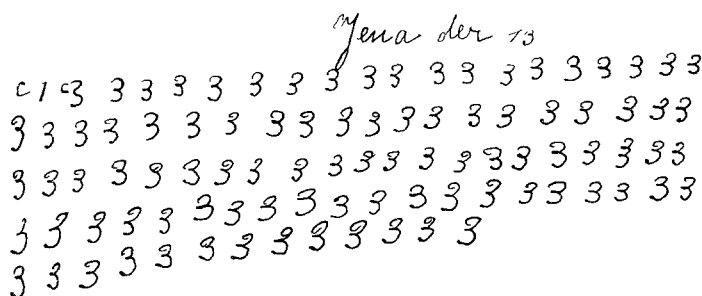 Jena der 13
c 1 c3 3 3 3 3 3 3 3 3 3 3 3 3 3 3 3 3 3 3
3 3 3 3 3 3 3 3 3 3 3 3 3 3 3 3 3 3 3 3
3 3 3 3 3 3 3 3 3 3 3 3 3 3 3 3 3 3 3 3 3
3 3 3 3 3 3 3 3 3 3 3 3 3 3 3 3 3 3 3 3
3 3 3 3 3 3 3 3 3 3 3 3 3